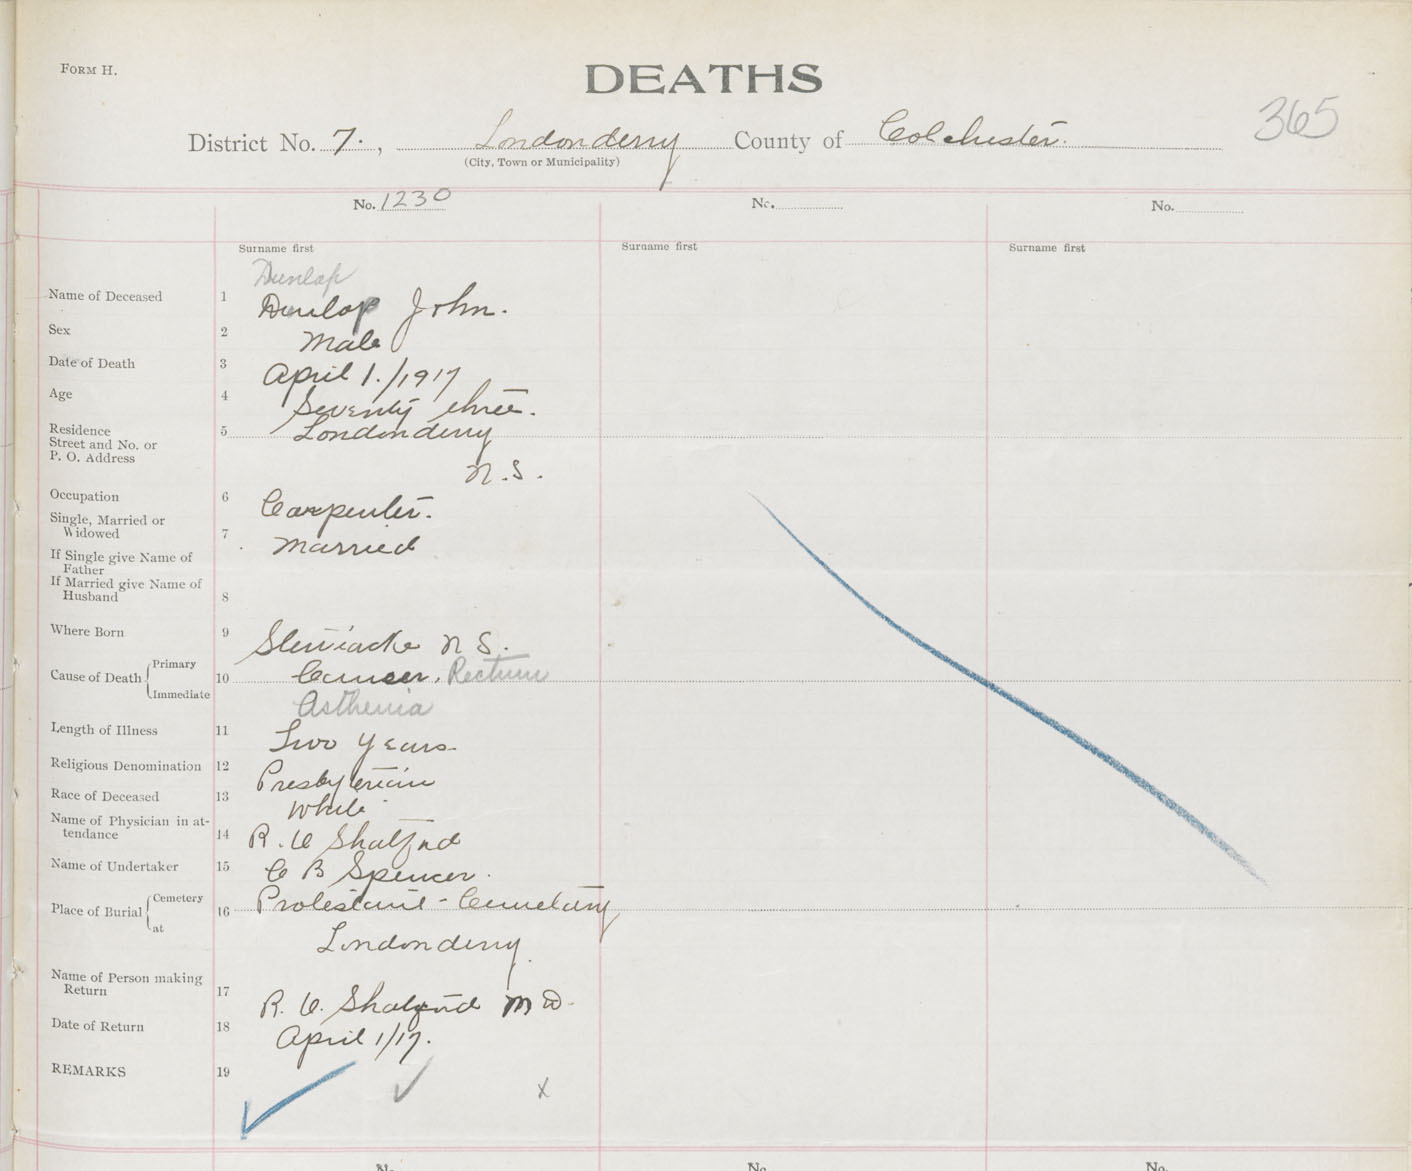 FORM H.
DEATHS
365
District No. 7., Londonderry County of Colchester.
(City, Town or Municipality)
No. 1230 No. No.
Surname first Surname first Surname first
Dunlap
Name of Deceased 1 Dunlap John.
Sex 2 Male
Date of Death 3 April 1./1917
Age 4 Seventy three.
Residence 5 Londonderry
Street and No. or
P. O. Address N.S.
Occupation 6 Carpenter.
Single, Married or
Widowed 7 Married
If Single give Name of
Father
If Married give Name of
Husband 8
Where Born 9 Stewiacke N S.
Cause of Death Primary 10 Cancer, Rectum
Immediate Asthenia
Length of Illness 11 Two years
Religious Denomination 12 Presbyterian
Race of Deceased 13 White
Name of Physician in at-
tendance 14 R. C Shatford
Name of Undertaker 15 C B Spencer.
Place of Burial Cemetery 16 Protestant - Cemetery
at Londonderry.
Name of Person making
Return 17 R. C. Shatford M D.
Date of Return 18 April 1/17.
REMARKS 19
x
No. No. No.